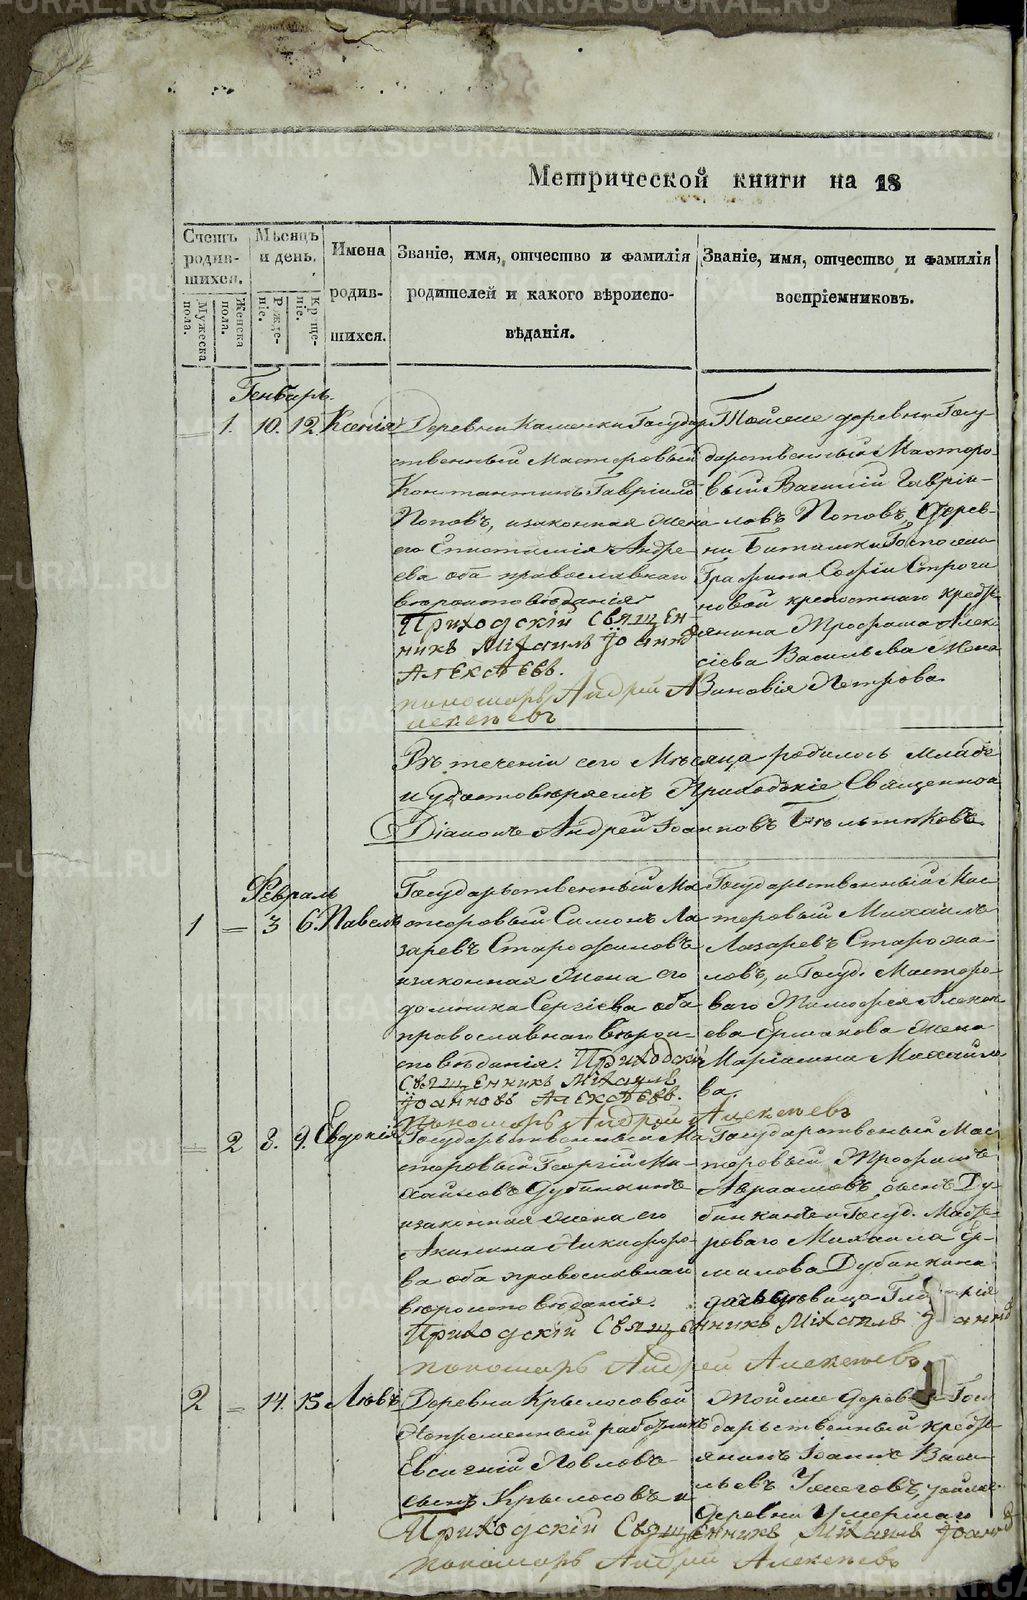 Метрической книги на 18
Счетъ родив-шихся.
Мужеска пола.
Женска пола.
Мѣсяцъ и день.
Рожде-ніе.
Креще-ніе.
Имена родив-шихся.
Званіе, имя, отчество и фамилія
родителей и какого вѣроиспо-
вѣданія.
Званіе, имя, отчество и фамилія
воспріемниковъ.
Генварь.
1. 10. 12. Ксенія
Деревни Каменки Государ
ственный Мастеровый
Константинъ Гавріиловъ
Поповъ, и законная жена
его Епистимія Андре
ева оба православнаго
вѣроисповѣданія
Приходскій Священ
никъ Міхаилъ Іоанно
Алексѣевъ.
пономарь Андрей А
лексѣевъ
Тойже деревни Госу
дарственный Мастеро
вый Василій Гавріи-
ловъ Поповъ, Дерев-
ни Госпожи
Графини Софіи Строга
новой крепостнаго крестья
янина Трофима Алек
сіева Васильева жена
Зиновія Петрова
Въ теченіи сего Мѣсяца родилось младе
и удостовѣряемъ Приходскіе Священно
Діаконъ Андрей Іоанновъ
Февраль
1 3 6. Павелъ
Государственный Ма
стеровый Симонъ Ла
заревъ
и законная жена его
домника Сергіева оба
православнаго вѣрои-
сповѣданія. Приходскі
Священникъ Міхаилъ
Іоанновъ Алексѣевъ.
Пономарь Андрей Алексѣевъ
Государственный Мас
теровый Михаилъ
Лазаревъ
ловъ, и Госуд. Мастеро
ваго Тимофея Алексѣ
ева Ермакова жена
Маріамна Михайло
ва.
2 8. 9. Евдокія
Государственный Ма
стеровый Георгій Ми-
хайловъ Дубинкинъ
и законная жена его
Акилина Никифоро
ва оба православнаго
вѣроисповѣданія.
Приходскій Священникъ Міхаилъ Іоанно
пономарь Андрей Алексѣевъ
Государственый Мас
теровый Трофимъ
Авраамовъ сынъ Ду
бинкинъ и Госуд. Масте
роваго Михаила Ер-
милова Дубинкина
дочь дѣвица
2 14. 15 Левъ
Деревни Крылосовой
Непременный работникъ
Евсигній Павловъ
сынъ Крылосовъ и
Тойже деревни Госу
дарственный крестья
янинъ Іоаннъ Васи
льевъ тойже
деревни Умершаго
Приходскій Священникъ Міхаилъ Іоанно
пономарь Андрей Алексѣевъ
METRIKI.GASO-URAL.RU